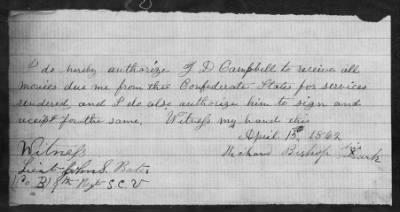 I do hereby authorize J D Campbell to receive all
monies due me from the Confederate States for services
rendered, and I do also authorize him to sign and
receipt for the same. Witness my hand this
April 1862
Witness Richard Bishop his mark
Lieut John S. Bates
Co. B 8th Regt S. C. V